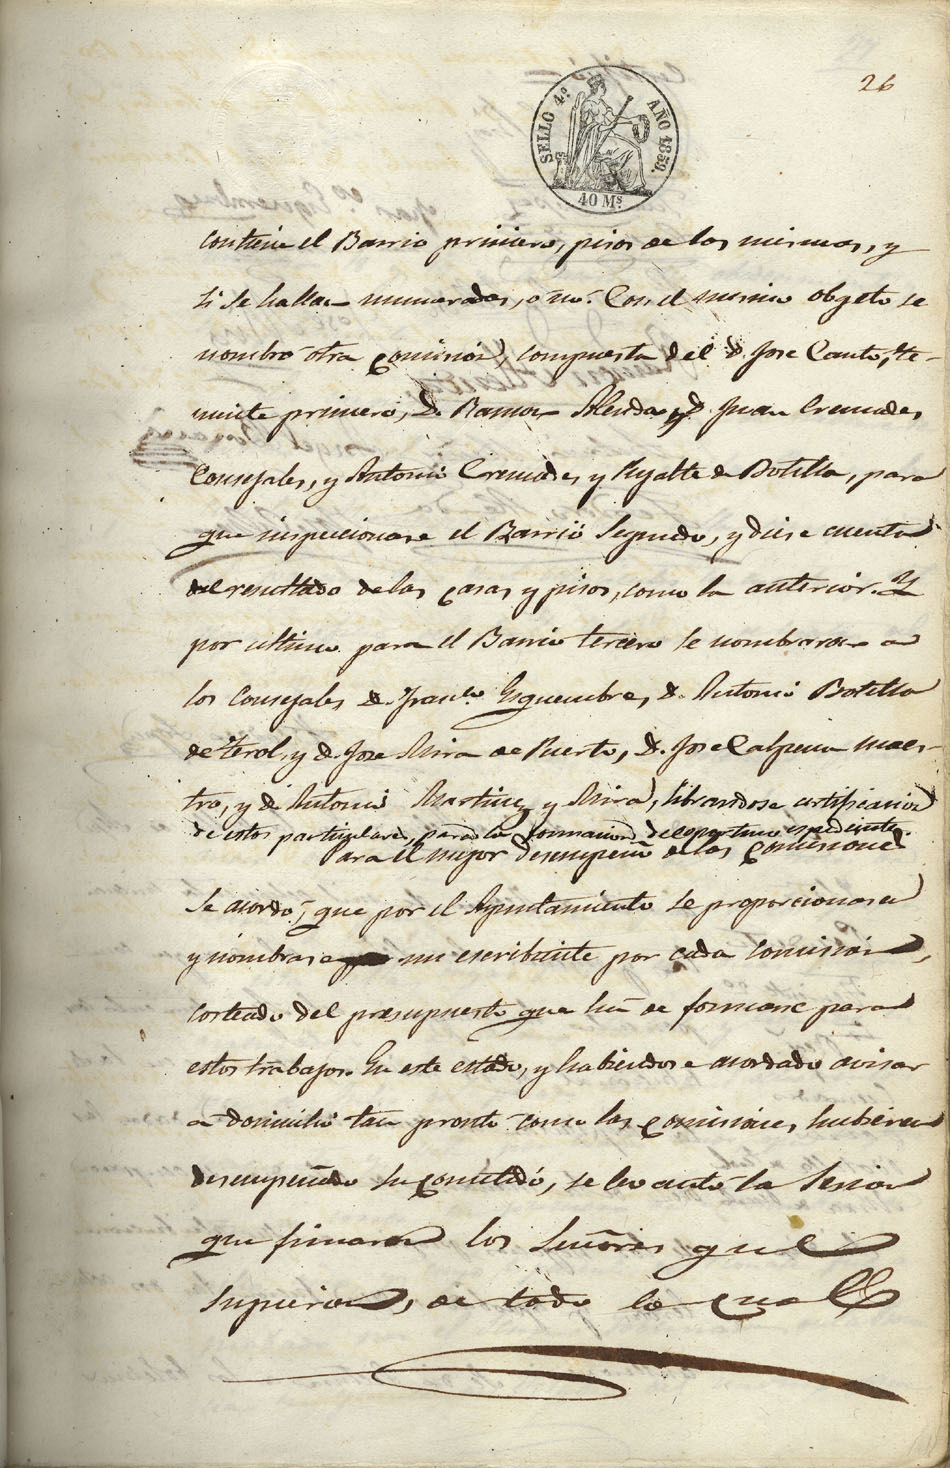 26
SELLO 4º AÑO 1859.
40 Ms.
contiene el Barrio primero, pisos de las mismas, y
si se hallan numeradas, o no. Con el mismo objeto se
nombró otra comisión, compuesta del D. Jose Canto, te-
niente primero, D. Ramon y D. Juan Cremades
Consejales, y Antonio Cremades y de Botella, para
que inspecionase el Barrio Segundo, y diese cuenta
del resultado de las casas y pisos, como la anterior. Y
por ultimo para el Barrio tercero se nombraron a
los Consejales D. Franco. Esquembre, D. Antonio Botella
de Terol, y D. Jose Mira de Puerto, D. Jose Calpena maes-
tro, y D. Antonio Martinez y Mira, librandose certificacion
de estos particulares, para la formacion del oportuno espediente.
Para el mejor desempeño de las comisiones
se acordó, que por el Ayuntamiento se proporcionara
y nombrase un escribiente por cada comision,
costeado del presupuesto que ha de formarse para
estos trabajos. En este estado, y habiendose acordado avisar
a domicilio tan pronto como las comisiones hubieran
desempeñado su cometido, se levantó la Sesion
que firmaron los Señores que
supieron, de todo lo cual